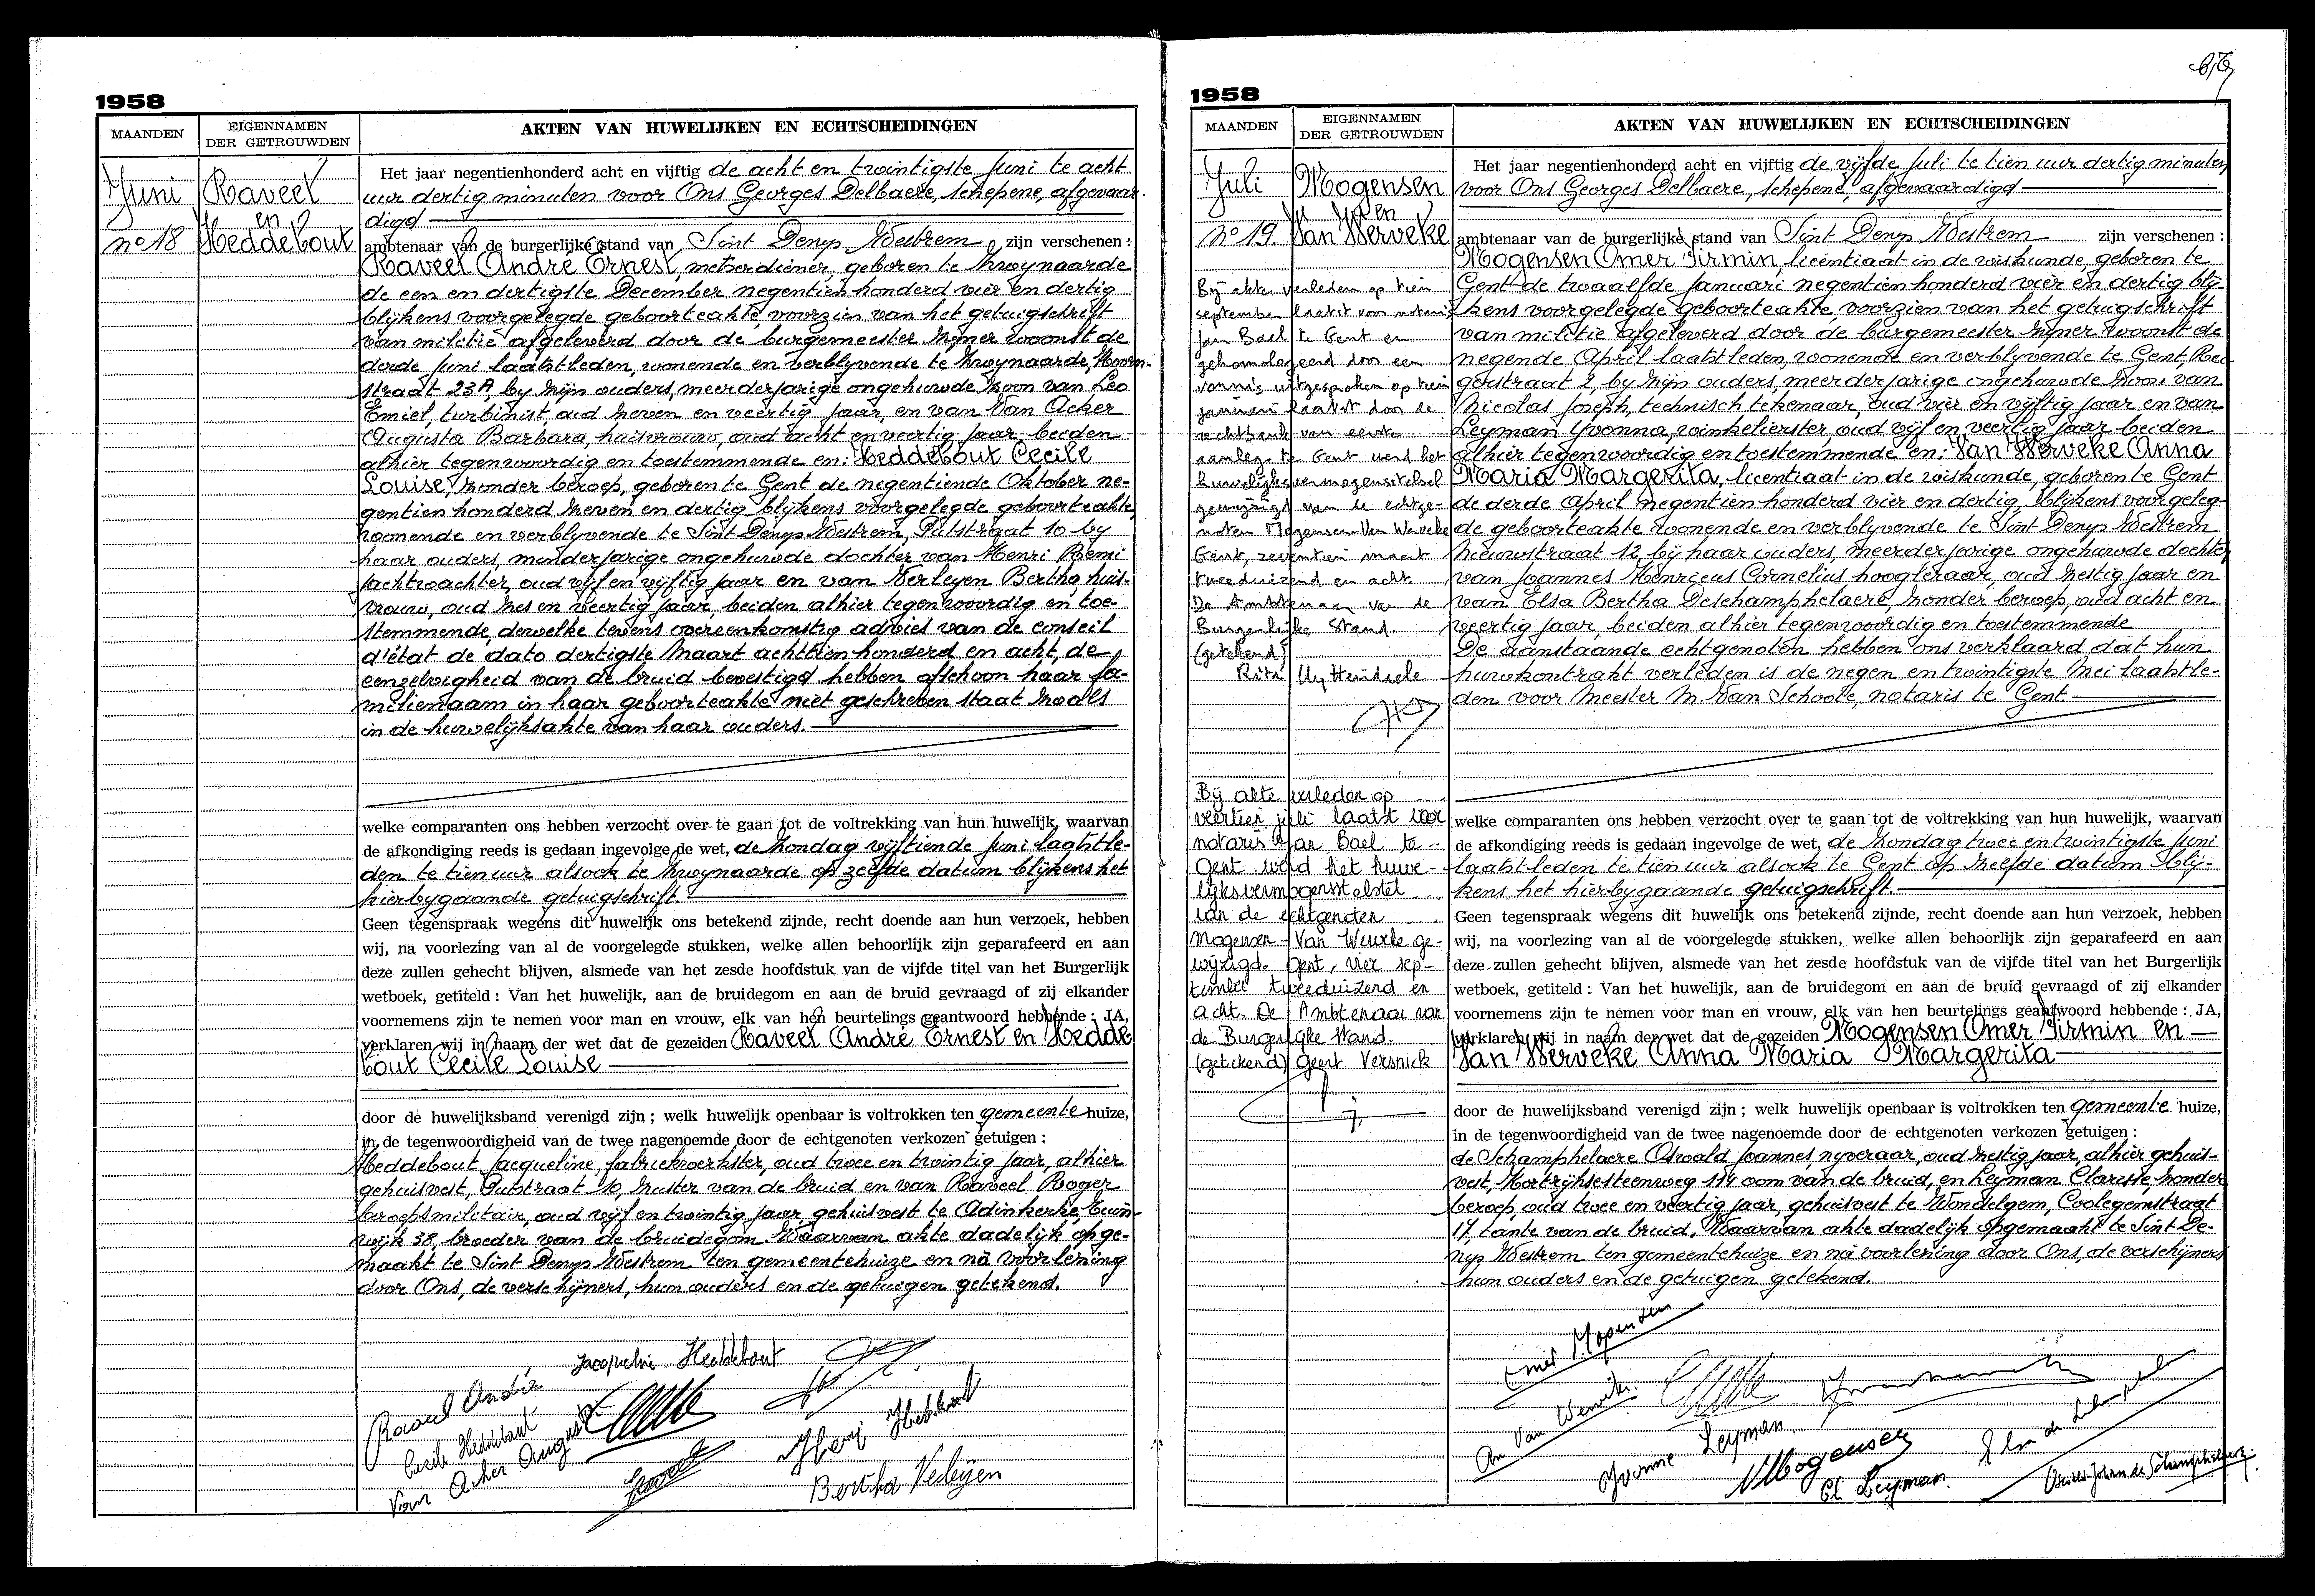 1958
MAANDEN
EIGENNAMEN
DER GETROUWDEN
AKTEN VAN HUWELIJKEN EN ECHTSCHEIDINGEN
Juni
n° 18
Raveel
en
Heddebout
Het jaar negentienhonderd acht en vijftig de acht en twintigste Juni te acht
uur dertig minuten voor Ons Georges Delbaere, schepene, afgevaar-
digd
ambtenaar van de burgerlijke stand van Sint Denys Westrem, zijn verschenen :
Raveel André Ernest, metserdiener, geboren te Zwynaarde
de een en dertigste December negentien honderd vier en dertig
blijkens voorgelegde geboorteakte, voorzien van het getuigschrift
van militie afgeleverd door de burgemeester zyner woonst de
derde Juni laatstleden, wonende en verblyvende te Zwynaarde,
straat 23A, by zijn ouders, meerderjarige ongehuwde zoon van Leo
Emiel, turbinist, oud zeven en veertig jaar, en van Van Acker
Augusta Barbara, huisvrouw, oud acht en veertig jaar, beiden
alhier tegenwoordig en toestemmende en: Heddebout Cecile
Louise, zonder beroep, geboren te Gent de negentiende Oktober ne-
gentien honderd zeven en dertig blijkens voorgelegde geboorteakte,
wonende en verblyvende te Sint Denys Westrem, Putstraat 10 by
haar ouders, minderjarige ongehuwde dochter van Henri Remi
jachtwachter, oud vijf en vyftig jaar en van Verleyen Bertha, huis-
vrouw, oud zes en veertig jaar, beiden alhier tegenwoordig en toe-
stemmende, dewelke tevens overeenkomstig advies van de conseil
d'état de dato dertigste Maart achttien honderd en acht, de
eenzelvigheid van de bruid bevestigd hebben alhoewel haar fa-
milienaam in haar geboorteakte niet geschreven staat zoals
in de huwelijksakte van haar ouders.
welke comparanten ons hebben verzocht over te gaan tot de voltrekking van hun huwelijk, waarvan
de afkondiging reeds is gedaan ingevolge de wet, de zondag vijftiende Juni laatstle-
den te tien uur alsook te Zwynaarde op zelfde datum blijkens het
hierbygaande getuigschrift.
Geen tegenspraak wegens dit huwelijk ons betekend zijnde, recht doende aan hun verzoek, hebben
wij, na voorlezing van al de voorgelegde stukken, welke allen behoorlijk zijn geparafeerd en aan
deze zullen gehecht blijven, alsmede van het zesde hoofdstuk van de vijfde titel van het Burgerlijk
wetboek, getiteld : Van het huwelijk, aan de bruidegom en aan de bruid gevraagd of zij elkander
voornemens zijn te nemen voor man en vrouw, elk van hen beurtelings geantwoord hebbende : JA,
verklaren wij in naam der wet dat de gezeiden Raveel André Ernest en Hedde
bout Cecile Louise
door de huwelijksband verenigd zijn ; welk huwelijk openbaar is voltrokken ten gemeente huize,
in de tegenwoordigheid van de twee nagenoemde door de echtgenoten verkozen getuigen :
Heddebout Jacqueline, fabriekwerkster, oud twee en twintig jaar, alhier
gehuisvest, Putstraat 10, zuster van de bruid en van Raveel Roger
beroepsmilitair, oud vijf en twintig jaar, gehuisvest te Adinkerke, tuin-
wijk 38, broeder van de bruidegom. Waarvan akte dadelijk opge-
maakt te Sint Denys Westrem ten gemeentehuize en nà voorlezing
door Ons, de verschijners, hun ouders en de getuigen getekend.
Jacqueline Heddebout
Raveel André
Cecile Heddebout
Van Acker August
Henri Heddebout
Bertha Verleyen
1958
MAANDEN
EIGENNAMEN
DER GETROUWDEN
AKTEN VAN HUWELIJKEN EN ECHTSCHEIDINGEN
Juli
n° 19
Mogensen
en
Van Werveke
Bij akte verleden op tien
september laatst voor notaris
Jan Bael te Gent en
gehomologeerd door een
vonnis uitgesproken op tien
januari laatst door de
rechtbank van eerste
aanleg te Gent werd het
huwelijksvermogensstelsel
gewijzigd van de echtge-
noten Mogensen-Van Werveke
Gent, zeventien maart
tweeduizend en acht
De Ambtenaar van de
Burgerlijke Stand.
(getekend)
Rita Uyttendaele
Bij akte verleden op
veertien juli laatst voor
notaris Jan Bael te
Gent werd het huwe-
lijksvermogensstelsel
van de echtgenoten
Mogensen - Van Werveke ge-
wijzigd. Gent, vier sep-
tember tweeduizend en
acht. De Ambtenaar van
de Burgerlijke Stand.
(getekend) Geert Versnick
Het jaar negentienhonderd acht en vijftig de vijfde Juli te tien uur dertig minuten
voor Ons Georges Delbaere, schepene, afgevaardigd
ambtenaar van de burgerlijke stand van Sint Denys Westrem zijn verschenen :
Mogensen Omer Firmin, licentiaat in de wiskunde, geboren te
Gent de twaalfde Januari negentien honderd vier en dertig blij-
kens voorgelegde geboorteakte, voorzien van het getuigschrift
van militie afgeleverd door de burgemeester zyner woonst de
negende April laatstleden, wonende en verblyvende te Gent, Rei-
gerstraat 2, by zijn ouders, meerderjarige ongehuwde zoon van
Nicolas Joseph, technisch tekenaar, oud vier en vyftig jaar en van
Leyman Yvonna, winkelierster oud vijf en veertig jaar beiden
alhier tegenwoordig en toestemmende en: Van Werveke Anna
Maria Margerita, licentiaat in de wiskunde, geboren te Gent
de derde April negentien honderd vier en dertig, blijkens voorgeleg-
de geboorteakte wonende en verblyvende te Sint Denys Westrem
Nieuwstraat 12, bij haar ouders, meerderjarige ongehuwde dochter
van Joannes Henricus Cornelius hoogleraar, oud zestig jaar en
van Elsa Bertha Deschamphelaere, zonder beroep, oud acht en
veertig jaar, beiden alhier tegenwoordig en toestemmende
De aanstaande echtgenoten hebben ons verklaard dat hun
huwkontrakt verleden is de negen en twintigste Mei laatstle-
den voor Meester M. Van Schoote, notaris te Gent.
welke comparanten ons hebben verzocht over te gaan tot de voltrekking van hun huwelijk, waarvan
de afkondiging reeds is gedaan ingevolge de wet, de zondag twee en twintigste Juni
laatstleden te tien uur alsook te Gent op zelfde datum blij-
kens het hierbygaande getuigschrift.
Geen tegenspraak wegens dit huwelijk ons betekend zijnde, recht doende aan hun verzoek, hebben
wij, na voorlezing van al de voorgelegde stukken, welke allen behoorlijk zijn geparafeerd en aan
deze zullen gehecht blijven, alsmede van het zesde hoofdstuk van de vijfde titel van het Burgerlijk
wetboek, getiteld : Van het huwelijk, aan de bruidegom en aan de bruid gevraagd of zij elkander
voornemens zijn te nemen voor man en vrouw, elk van hen beurtelings geantwoord hebbende : JA,
verklaren wij in naam der wet dat de gezeiden Mogensen Omer Firmin en
Van Werveke Anna Maria Margerita
door de huwelijksband verenigd zijn ; welk huwelijk openbaar is voltrokken ten gemeente huize,
in de tegenwoordigheid van de twee nagenoemde door de echtgenoten verkozen getuigen :
de Schamphelaere Oswald Joannes, nyveraar, oud zestig jaar, alhier gehuis-
vest, Kortrijksesteenweg 114 oom van de bruid, en Leyman Clarisse, zonder
beroep, oud twee en veertig jaar, gehuisvest te Wondelgem, Coolegemstraat
17, tante van de bruid. Waarvan akte dadelijk opgemaakt te Sint De-
nys Westrem ten gemeentehuize en nà voorlezing door Ons, de verschijners
hun ouders en de getuigen getekend.
Omer Mogensen
An Van Werveke
Yvonne Leyman
NMogensen
Cl. Leyman
Elsa de Schamphelaere